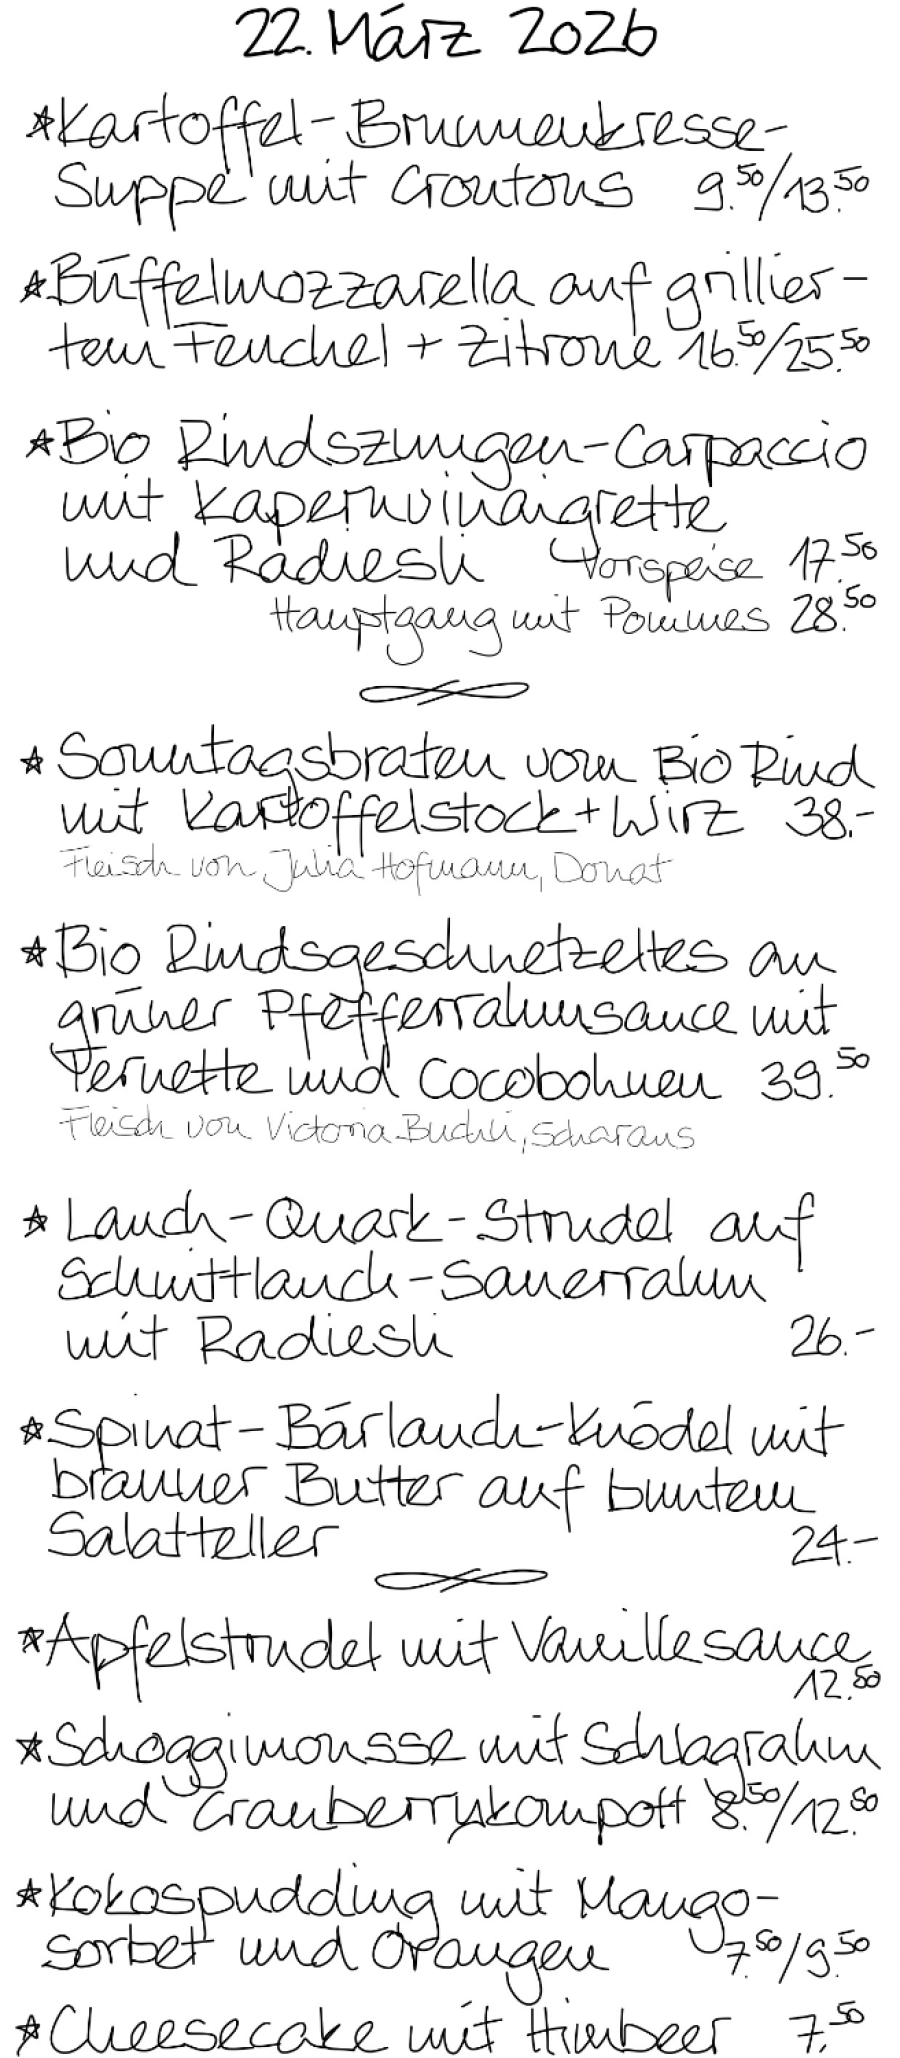 22. März 2026
*Kartoffel-Brunnenkresse-
Suppe mit Croutons 9.50/13.50
*Büffelmozzarella auf grillier-
tem Fenchel + Zitrone 16.50/25.50
*Bio Rindszungen-Carpaccio
mit Kapernvinaigrette
und Radiesli Vorspeise 17.50
Hauptgang mit Pommes 28.50
* Sonntagsbraten vom Bio Rind
mit Kartoffelstock + Wirz 38.-
Fleisch von Julia Hofmann, Donat
*Bio Rindsgeschnetzeltes an
grüner Pfefferrahmsauce mit
Pernette und Cocobohnen 39.50
Fleisch von Victoria Buchli, Scharans
* Lauch-Quark-Strudel auf
Schnittlauch-Sauerrahm
mit Radiesli 26.-
*Spinat-Bärlauch-Knödel mit
brauner Butter auf buntem
Salatteller 24.-
*Apfelstrudel mit Vanillesauce
12.50
*Schoggimousse mit Schlagrahm
und Cranberrykompott 8.50/12.80
*Kokospudding mit Mango-
sorbet und Orangen 7.50/9.50
*Cheesecake mit Himbeer 7.50